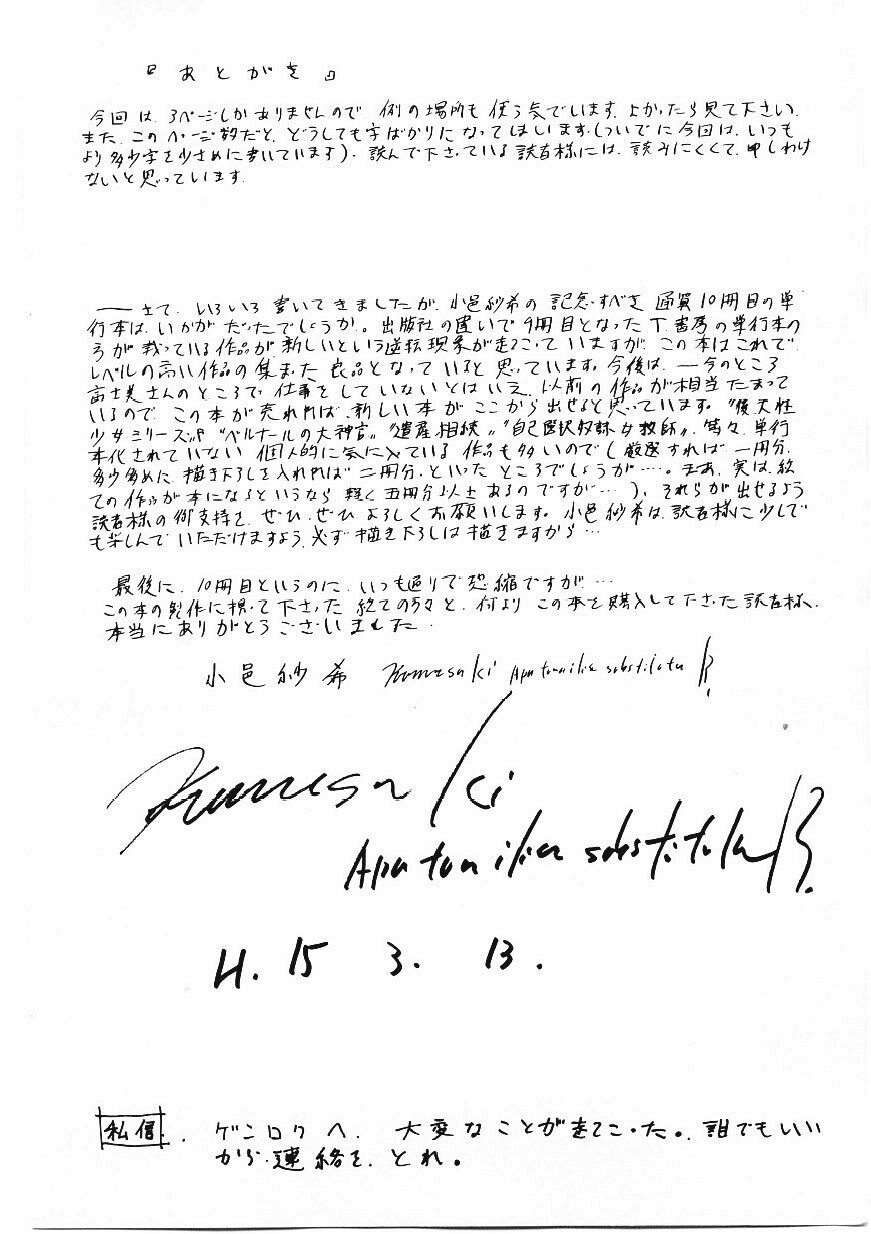 『あとがき』
今回は、3ページしかありませんので、例の場所も使う気でいます。よかったら見て下さい。
また、このページ数だと、どうしても字ばかりになってしまいます(ついでに今回は、いつも
より多少字を少さめに書いています)。読んで下さっている読者様には、読みにくくて、申しわけ
ないと思っています。
――さて、いろいろ書いてきましたが、小邑紗希の記念すべき通算10冊目の単
行本は、いかがだったでしょうか。出版社の違いで9冊目となったT書房の単行本の
方が載っている作品が新しいという逆転現象が起こっていますが、この本はこれで、
レベルの高い作品の集まった良品となっていると思っています。今後は、――今のところ
富士美さんのところで、仕事をしていないとはいえ、以前の作品が相当たまって
いるので、この本が売れれば、新しい本がここから出せると思っています。〝後天性
少女シリーズ〟〝ベルナールの大神官〟〝遺産相続〟〝自己選択奴隷女教師〟等々、単行
本化されていない個人的に気に入っている作品も多いのでし(厳選すれば一冊分、
多少多めに、描き下ろしを入れれば二冊分、といったところでしょうが…。まあ、実は、総
ての作品が本になるというなら軽く五冊分以上あるのですが…)、それらが出せるよう
読者様の御支持を、ぜひ、ぜひよろしくお願いします。小邑紗希は、読者様に少しで
も楽しんでいただけますよう、必ず描き下ろしは描きますから…
最後に、10冊目というのに、いつも通りで恐縮ですが…
この本の製作に携って下さった総ての方々と、何よりこの本を購入して下さった読者様、
本当にありがとうございました。
小邑紗希 Kumasaki
Kumasaki
H. 15 3. 13.
私信. ゲンロクへ、大変なことが起こった。誰でもいい
から連絡を、とれ。